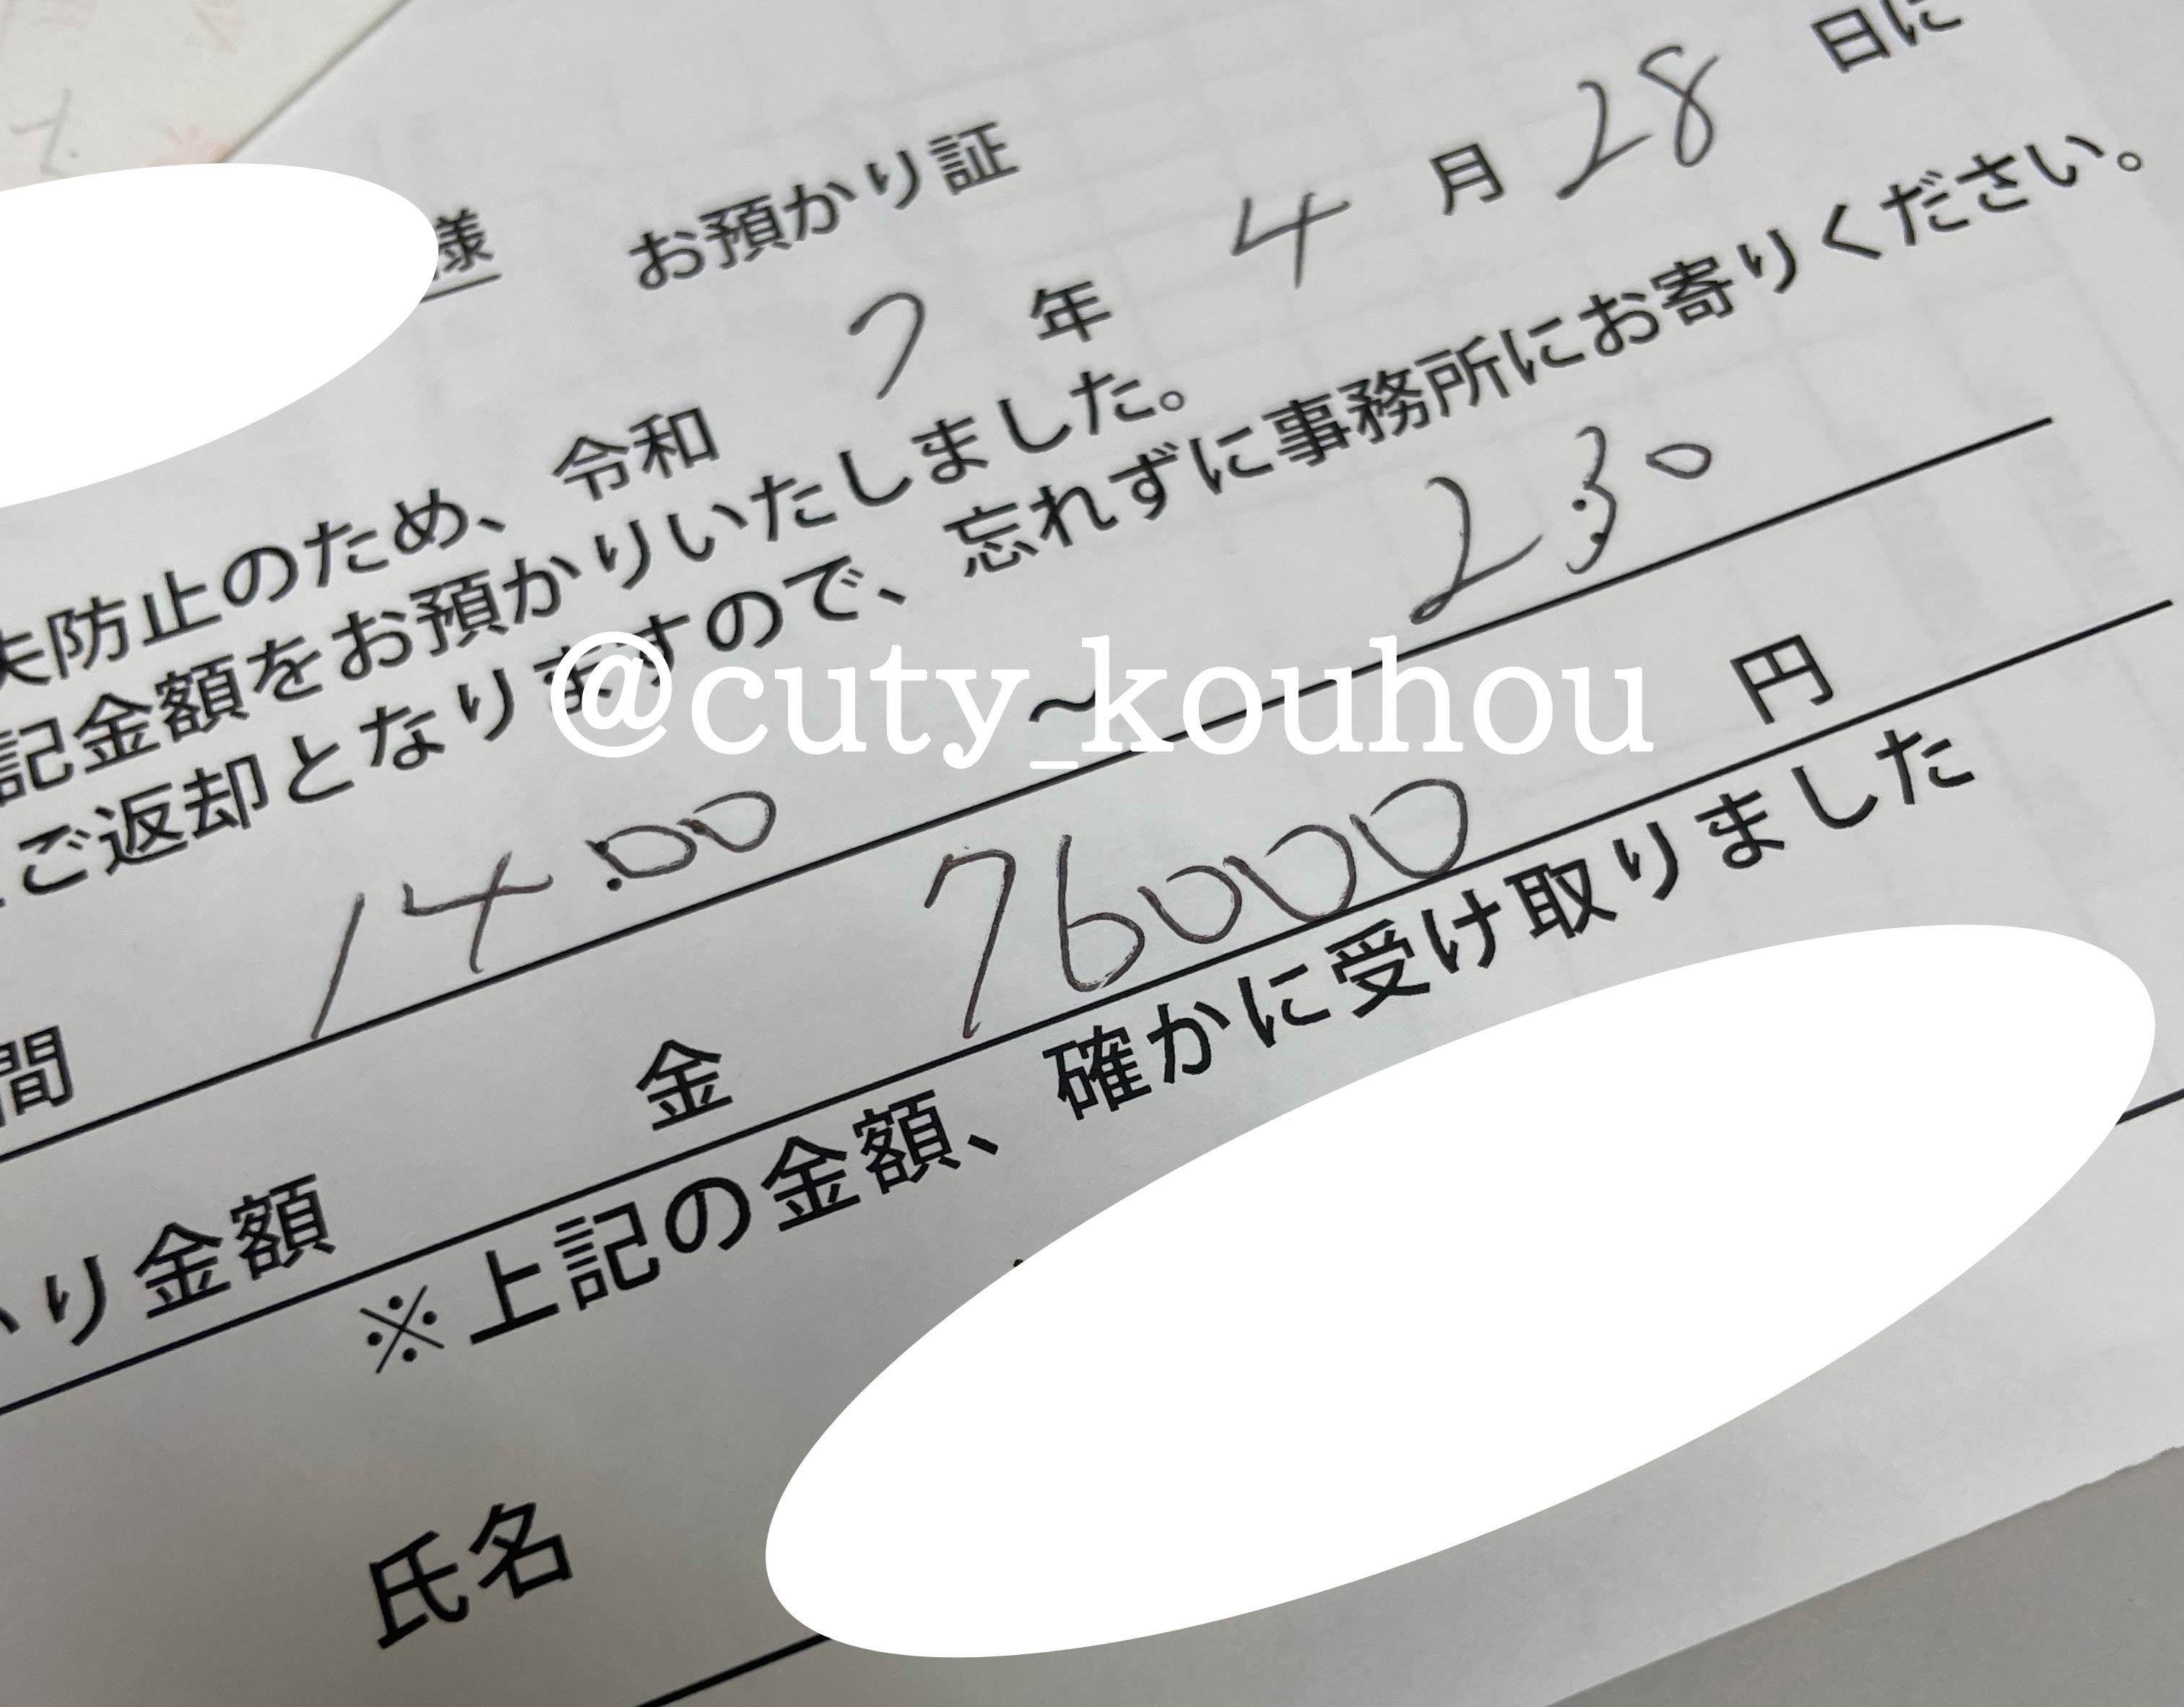 様 お預かり証
失防止のため、令和 7 年 4 月 28 日に
記金額をお預かりいたしました。
ご返却となりますので、忘れずに事務所にお寄りください。
間 14:00 〜 2:30
@cuty_kouhou
り金額 金 76000 円
※上記の金額、確かに受け取りました
氏名